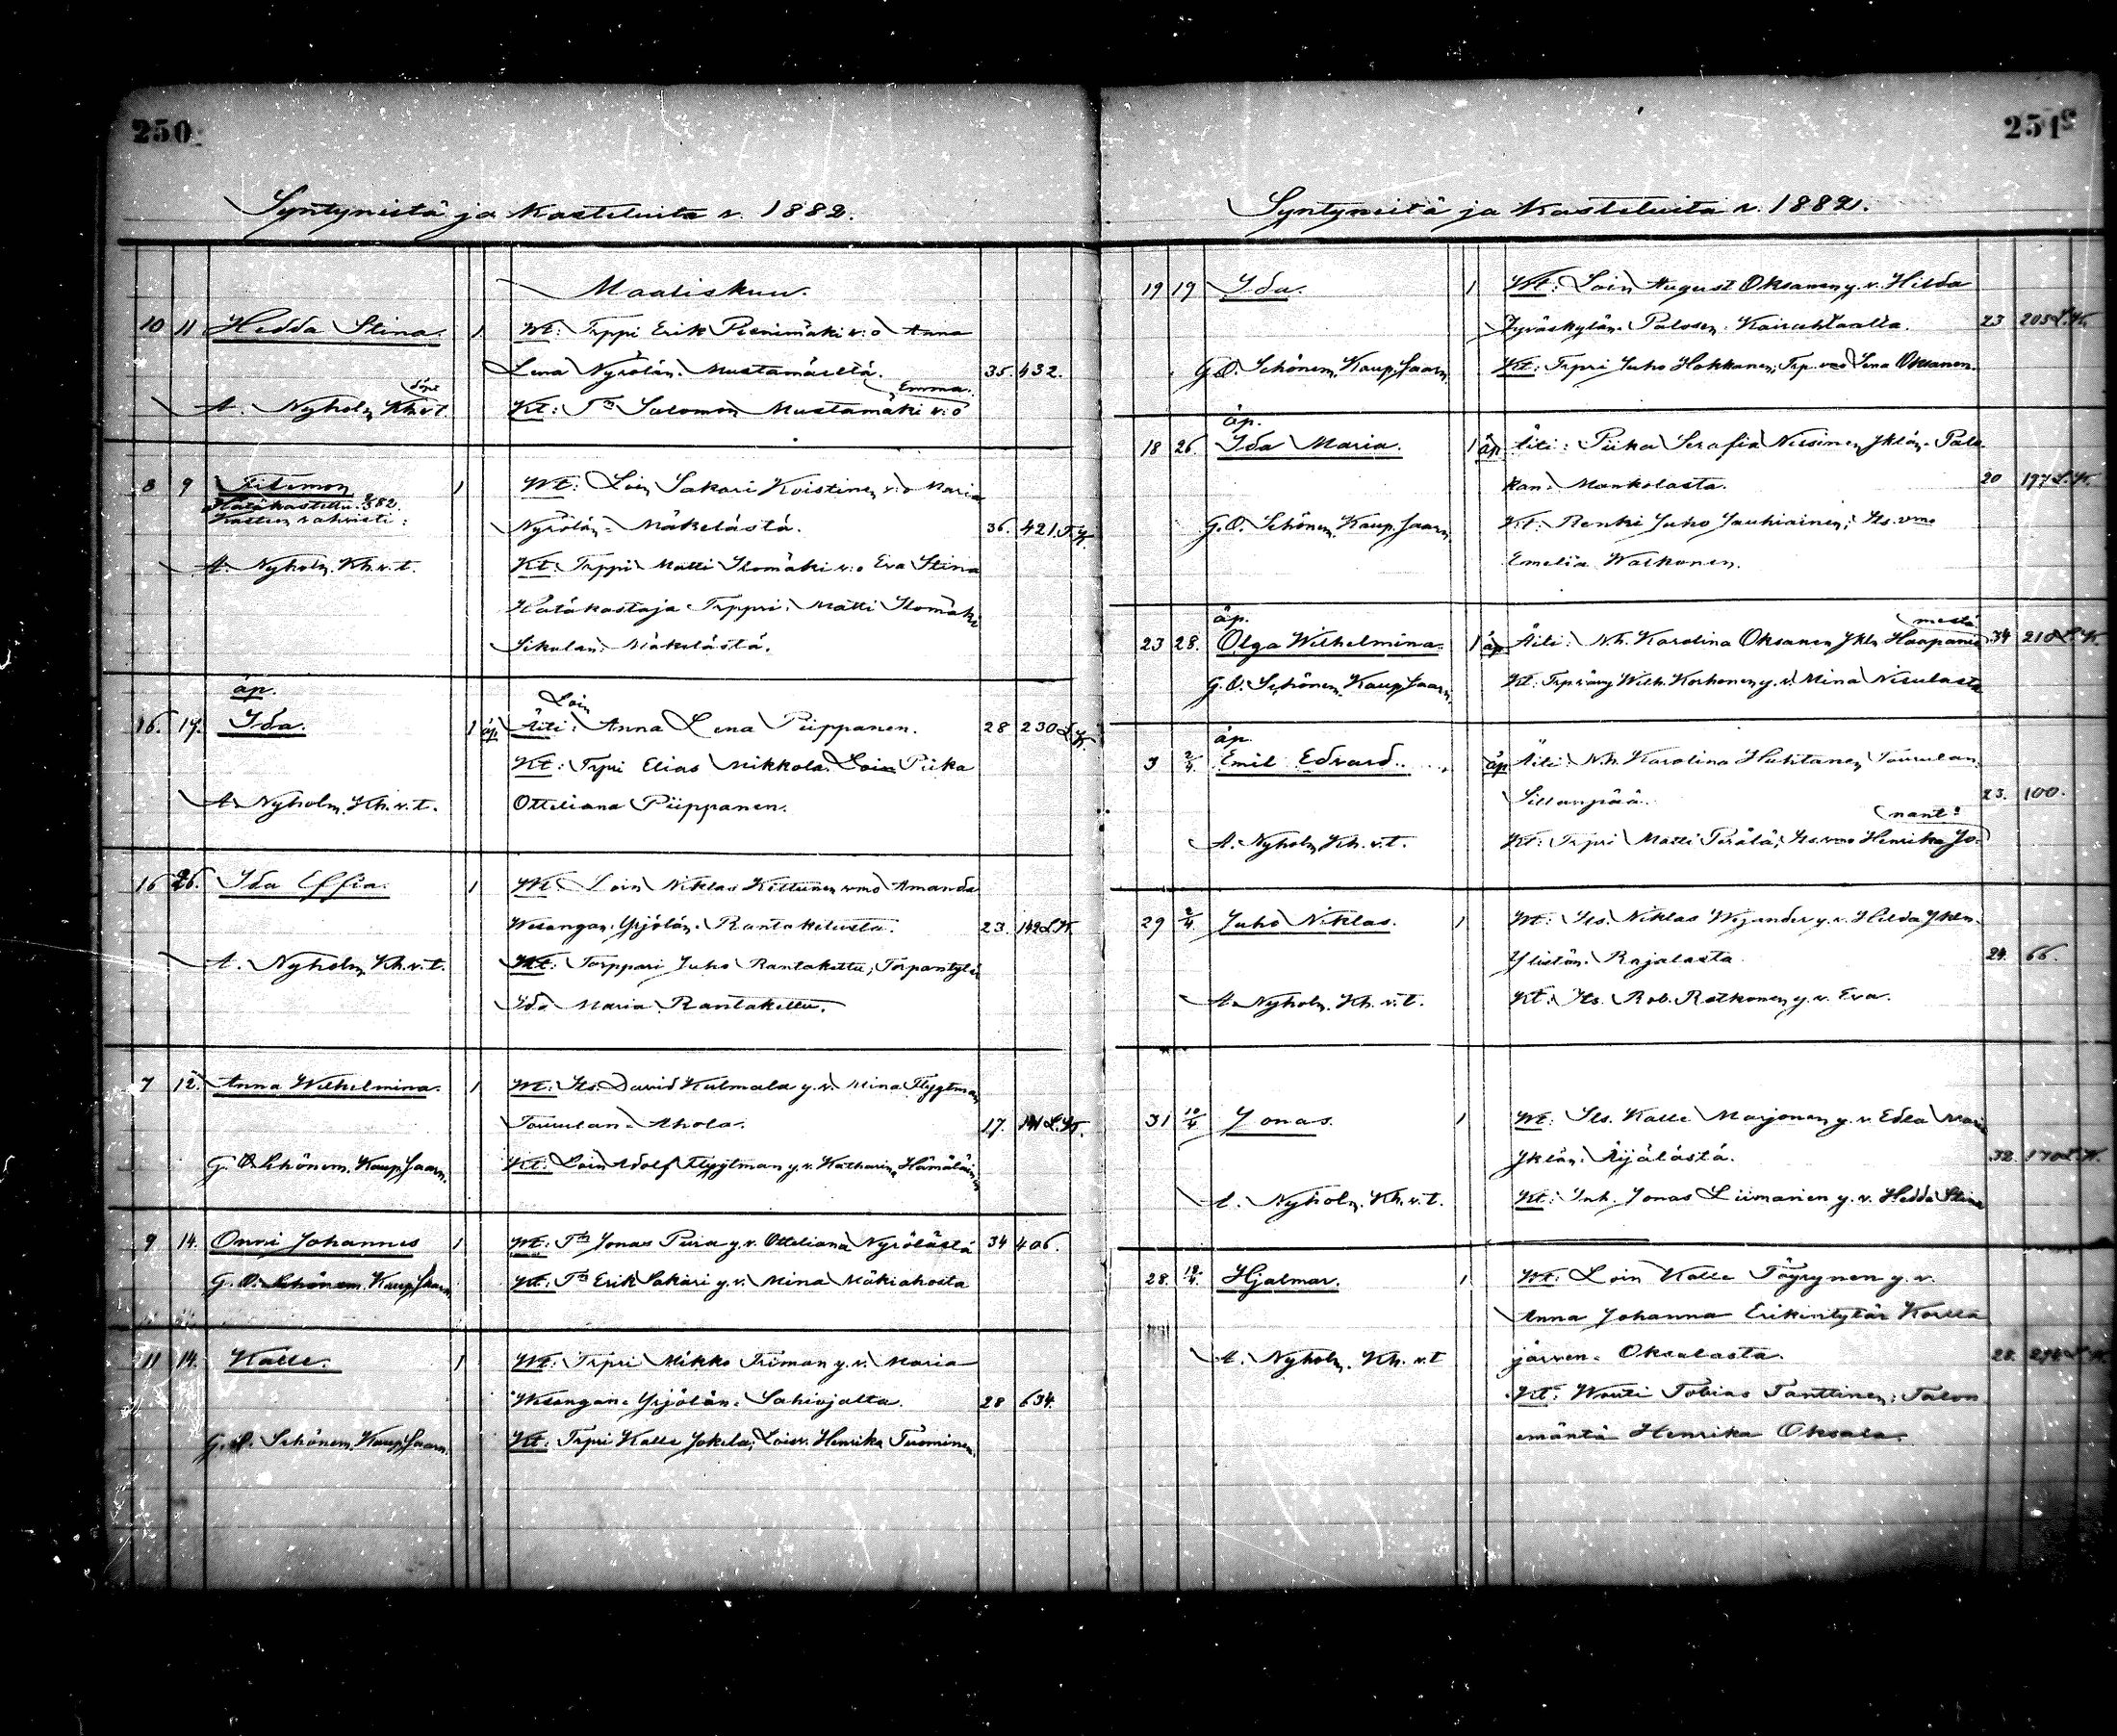 250
Syntyneitä ja Kasteluita v. 1882.
Maaliskuu.
10 11 Hedda Stina. 1 Wt: Trppi Erik Pienimäki v:o Anna
Lena Nyrölän. Mustamäeltä. 35. 432.
Emma.
A. Nyholm Kh.v.t. Kt: Tn Salomon Mustamäki v:o
8 9 Filemon 1 Wt: Loin Sakari Koistinen v:o Maria
Hätäkastettu 9/3 82.
Kasteen vahvisti:
Nyrölän. Mäkelästä. 36. 421.T.K.
A. Nyholm. Kh.v.t. Kt: Trppi Matti Ilomäki v:o Eva Stina
Hätäkastaja Trppri. Matti Ilomäki
Sikulan. Mäkelästä.
äp. Loin
16. 17. Ida. 1 äp. Äiti: Anna Lena Piippanen. 28 230 L.K.
Kt: Trpri Elias Mikkola. Loin Piika
A. Nyholm. Kh.v.t. Otteliana Piippanen.
16 26. Ida Effia. 1 Wt: Loin Niklas Kettunen vmo Amanda
Wesangan. Yrjölän. Rantaketusta. 23. 149 L.K.
A. Nyholm Kh.v.t. Kt: Torppari Juho Rantakettu; Torpantytär
Ida Maria Rantakettu.
7 12. Anna Wilhelmina. 1 Wt: Its. David Kulmala y.v. Mina Flygtman
Tourulan. Ahola. 17. 141 L.K.
G. O. Schöneman. Kaup. Saarn. Kt: Loin Adolf Flygtman y.v. Katharina Hämäläinen
9 14. Onni Johannes 1 Wt: Tn Jonas Pura y.v. Otteliana Nyrölästä 34 406.
G. O. Schöneman. Kaup. Saarn. Kt: Tn Erik Sakari y.v. Mina Mäkiaholta
11 14. Kalle. 1 Wt: Trpri Mikko Friman y.v. Maria
Wesangan. Yrjölän. Sahiojalta. 28 634.
G. O. Schöneman. Kaup. Saarn. Kt: Trpri Kalle Jokela; Loisv. Henrika Tuominen
251
Syntyneitä ja Kasteluita v. 1882.
19 19 Ida. 1 Wt: Loin August Oksanen y.v. Hilda
Jyväskylän. Palosen. Kairahtaalta. 23 205 L.K.
G.O. Schöneman. Kaup. Saarn. Kt: Trpri Juho Hakkanen; Trp. vmo Lena Oksanen.
äp.
18 26. Ida Maria. 1 äp Äiti: Piika Serafia Nissinen Jklän. Palo
kan. Mankolasta. 20 197 L.K.
G.O. Schöneman. Kaup. Saarn Kt: Renki Juho Jauhiainen; Its. vmo
Emelia Watkonen.
äp. mestä
23 28. Olga Wilhelmina. 1 äp Äiti: N.h. Karolina Oksanen Jkln Haapanie 34 210 L.K.
G.O. Schöneman. Kaup. Saarn. Kt: Trp.väny Wilh. Korhonen y.v. Mina Nisulasta
äp.
3 2/4. Emil Edvard. äp Äiti: N.h. Karolina Huhtanen Tourulan
Sillanpää. 23. 100.
nant:
A. Nyholm Kh.v.t. Kt: Trpri Matti Perälä; Its. vmo Henrika Jo-
29 2/4. Juho Niklas. 1 Wt: Its. Niklas Wejander y.v. Hilda Jkln
Ylistön. Rajalasta. 24. 66.
A. Nyholm. Kh.v.t. Kt: Its. Rob. Ratkonen y.v. Eva.
31 10/4 Jonas. 1 Wt: Its. Kalle Marjonen y.v. Edla Maria
Jklän. Äijälästä. 32. 170 L.K.
A. Nyholm. Kh.v.t. Kt: Inh. Jonas Liimanen y.v. Hedda Stina
28. 12/4 Hjalmar. 1 Wt: Loin Kalle Töyrynen y.v.
Anna Johanna Erikintytär Korta
A. Nyholm. Kh.v.t järven. Oksalasta. 28.
Kt: Wouti Tobias Tanttinen; Talon
emäntä Henrika Oksala.